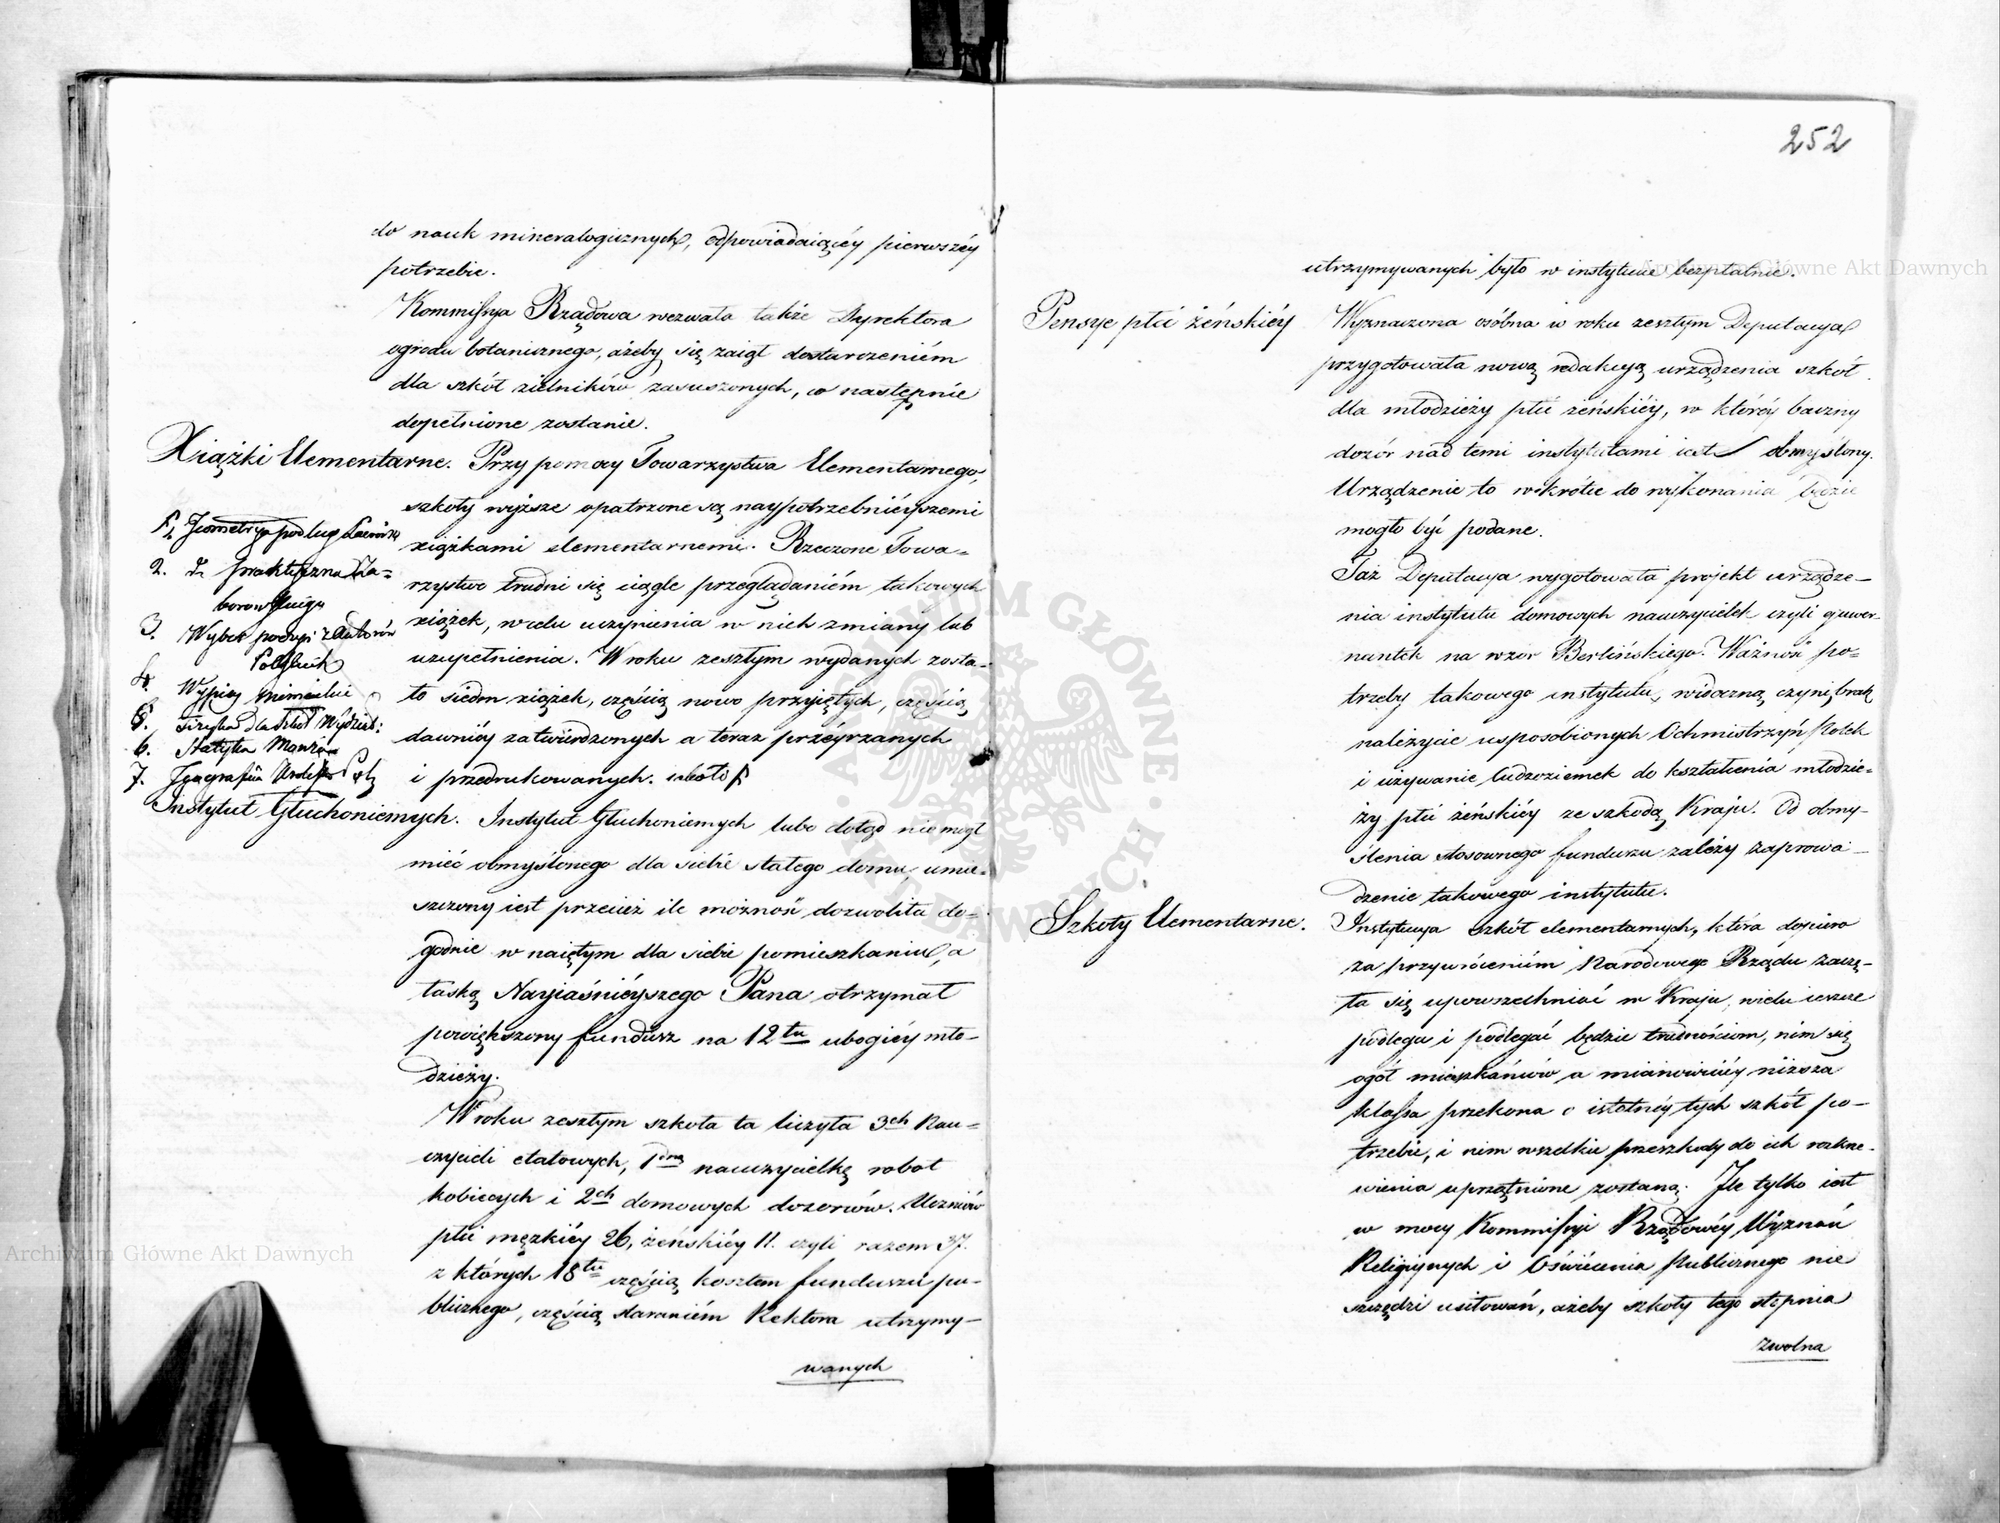 do nauk mineralogicznych, odpowiadaiącéy pierwszéy
potrzebie.
Kommissyja Rządowa wezwała także Dyrektora
ogrodu botanicznego, ażeby się zaiął dostarczeniém
dla szkół zielników zasuszonych, co następnie
dopełnione zostanie.
Xiążki Elementarne. Przy pomocy Towarzystwa Elementarnego,
szkoły wyższe opatrzone są naypotrzebniéyszemi
xiążkami elementarnemi. Rzeczone Towa=
rzystwo trudni się ciągle przeglądaniém takowych
xiążek, w celu uczynienia w nich zmiany lub
uzupełnienia. W roku zeszłym wydanych zosta-
ło siedm xiążek, częścią nowo przyiętych, częścią
dawniéy zatwierdzonych a teraz przéyrzanych
i przedrukowanych.
1. Jeometryja podług Lacroix
2. praktyczna Za=
borowskiego
3. Wybór poezyi z Autorów
Polskich
4. Wypisy niemieckie
5. Fizyka dla szkół Wydział:
6. Statyka Monża
7. Jeografia
Instytut Głuchoniemych. Instytut Głuchoniemych lubo dotąd nie mógł
mieć obmyślonego dla siebie stałego domu, umie=
szczony iest przecież ile możność dozwoliła do=
godnie w naiętym dla siebie pomieszkaniu, a
łaską Nayiaśniéyszego Pana otrzymał
powiększony fundusz na 12tu ubogiéy mło-
dzieży.
W roku zeszłym szkoła ta liczyła 3ch Nau=
czycieli etatowych, 1dną nauczycielkę robot
kobiecych i 2ch domowych dozorców. Uczniów
płci męzkiéy 26, żeńskiéy 11. czyli razem 37.
z których 18tu częścią kosztem funduszu pu-
blicznego, częścią staraniém Rektora utrzymy-
wanych
252
utrzymywanych było w instytucie bezpłatnie.
Pensye płci żeńskiéy Wyznaczona osóbna w roku zeszłym Deputacya
przygotowała nową redakcyą urządzenia szkół
dla młodzieży płci żeńskiéy, w któréy baczny
dozór nad temi instytutami iest obmyślony.
Urządzenie to wkrótce do wykonania będzie
mogło być podane.
Taż Deputacya wygotowała projekt urządze-
nia instytutu domowych nauczycielek czyli guwer-
nantek na wzór Berlińskiego. Ważność po=
trzeby takowego instytutu, widoczną czyni, brak
należycie usposobionych Ochmistrzyń Polek
i używanie Cudzoziemek do kształcenia młodzie=
ży płci żeńskiéy ze szkodą Kraju. Od obmy-
ślenia stosownego funduszu zależy zaprowa-
dzenie takowego instytutu.
Szkoły Elementarne. Instytucya szkół elementarnych, która dopiero
za przywróceniém Narodowego Rządu zaczę-
ła się upowszechniać w Kraju, wielu ieszcze
podlega i podlegać będzie trudnościom, nim się
ogół mieszkańców a mianowiciéy niższa
klassa przekona o istotnéy tych szkół po-
trzebie, i nim wszelkie przeszkody do ich rozkrze-
wienia uprzątnione zostaną. Ile tylko iest
w mocy Kommissyi Rządowéy Wyznań
Religiynych i Oświecenia Publicznego nie
szczędzi usiłowań, ażeby szkoły tego stopnia
zwolna
Archiwum Główne Akt Dawnych
Archiwum Główne Akt Dawnych
ARCHIWUM GŁÓWNE AKT DAWNYCH